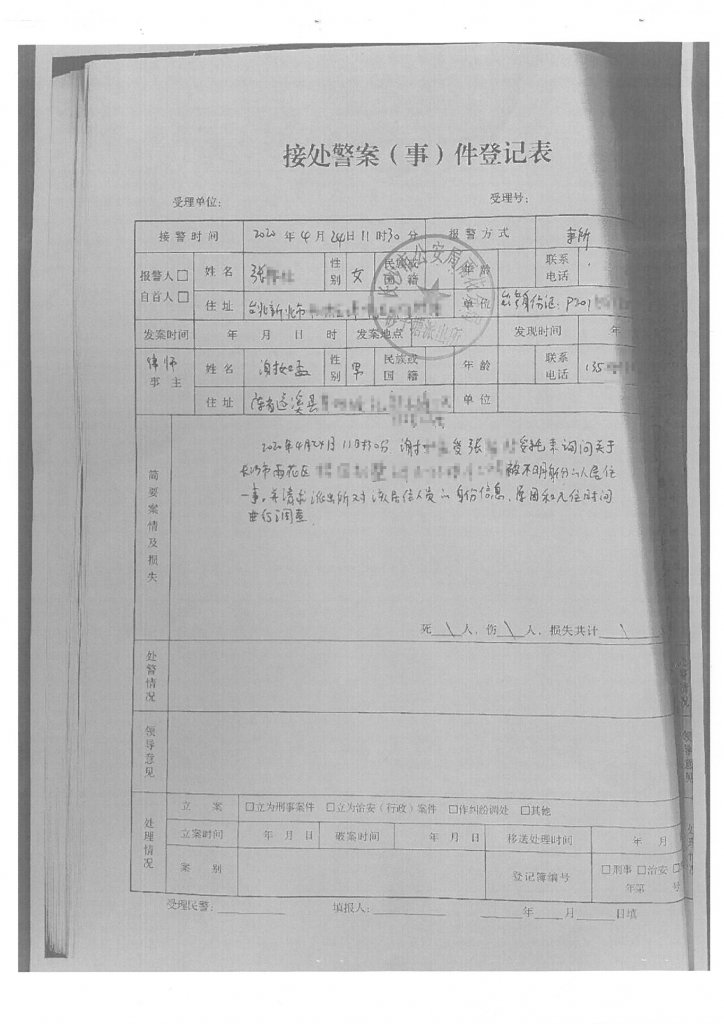 接处警案（事）件登记表
受理单位： 受理号：
接警时间 2020年4月24日11时30分 报警方式
报警人□ 自首人□ 姓名 张 性别 女 民族或国籍 年龄 联系电话
住址 台北新北市 单位 台湾身份证：P201
发案时间 年 月 日 时 发案地点 发现时间 年
律师 事主 姓名 性别 男 民族或国籍 年龄 联系电话 135
住址 遂溪县 单位
简要案情及损失
2020年4月24日11时30分 谢 受张 委托来询问关于
长沙市雨花区 被不明身份的人居住
一事。并请求派出所对该居住人员的身份信息、原因和居住时间
进行调查
死 \ 人，伤 \ 人，损失共计 \
处警情况
领导意见
处理情况
立案 □立为刑事案件 □立为治安（行政）案件 □作纠纷调处 □其他
立案时间 年 月 日 破案时间 年 月 日 移送处理时间 年 月
案别 登记簿编号 □刑事 □治安 □
年第 号
受理民警： 填报人： 年 月 日填